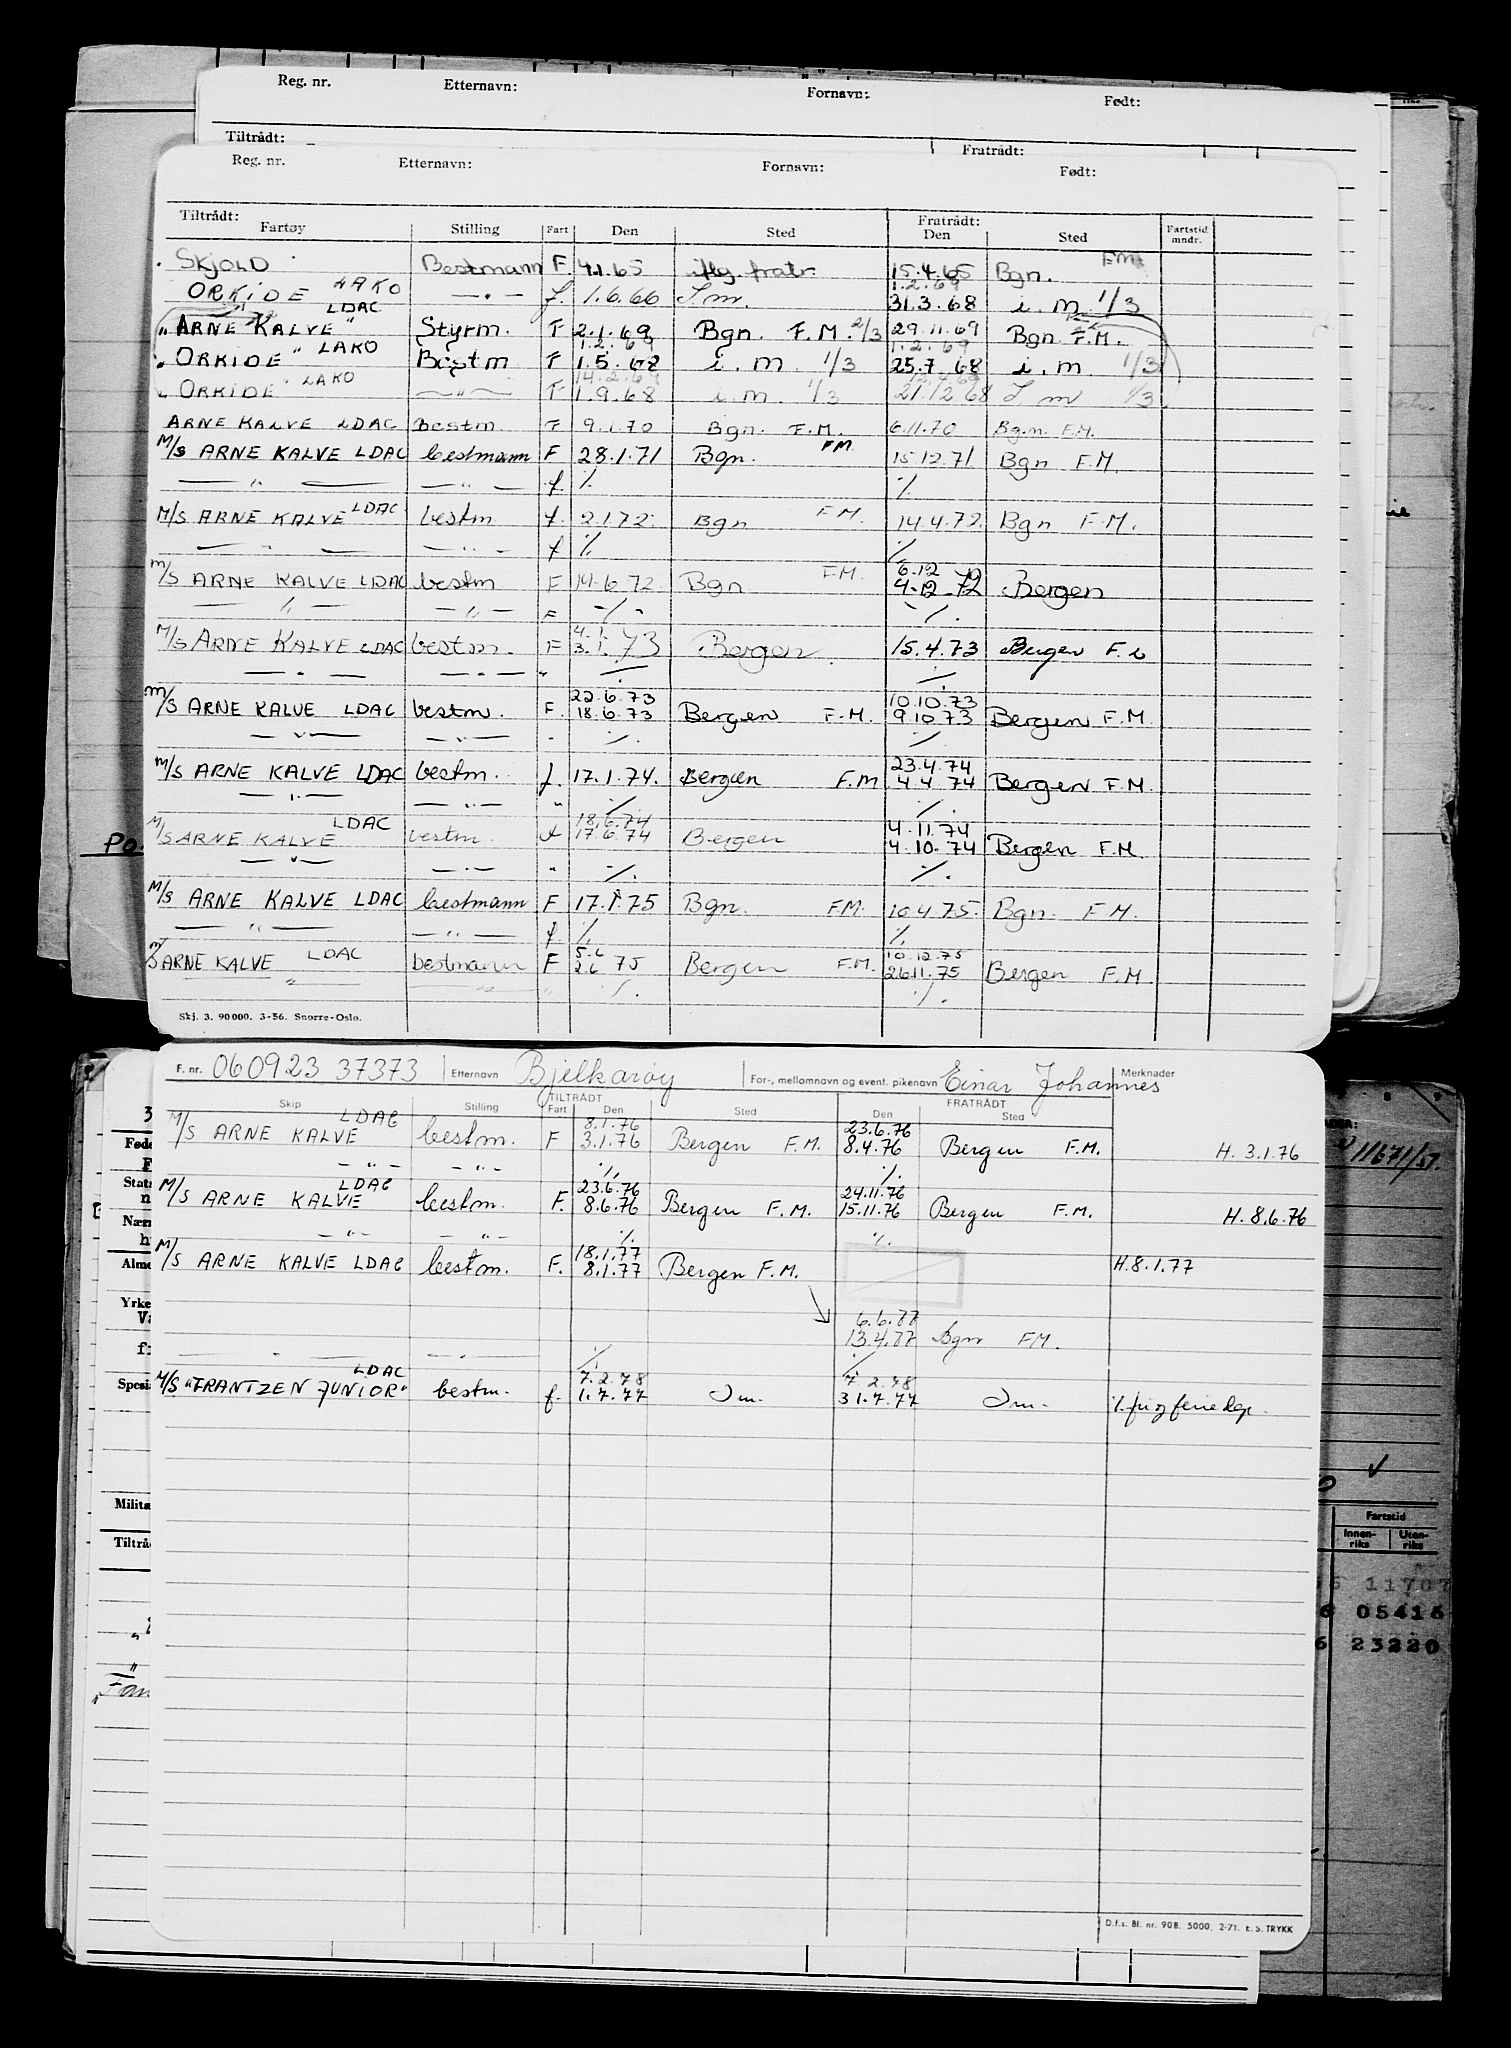 Reg. nr. Etternavn: Fornavn: Født:
Tiltrådt: Fratrådt:
Reg. nr. Etternavn: Fornavn: Født:
Tiltrådt: Fratrådt:
Fartøy Stilling Fart Den Sted Den Sted Fartstid mndr.
SKJOLD Bestmann F. 4.1.65 iflg. fratr. 15.4.65 Bgn. F.M.
1.2.69
ORKIDE LAKO — " — f. 1.6.66 I m. 31.3.68 i. m. 1/3
"ARNE KALVE" LDAC Styrm. F 2.1.69 Bgn. F.M. 2/3 29.11.69 Bgn F.M.
1.2.69 1.2.69
"ORKIDE" LAKO Bestm F 1.5.68 i. m. 1/3 25.7.68 i. m. 1/3
14.2.69
"ORKIDE" LAKO — " — F 1.9.68 i. m. 1/3 21.12.68 I m 1/3
ARNE KALVE LDAC Bestm. F 9.1.70 Bgn. F.M. 6.11.70 Bgn. F.M.
M/S ARNE KALVE LDAC bestmann F 28.1.71 Bgn. F.M. 15.12.71 Bgn F.M.
— " — — " — f. ./. ./.
M/S ARNE KALVE LDAC bestm. f. 2.1.72. Bgn F.M. 14.4.72. Bgn F.M.
— " — — " — f ./. ./.
6.12.72
M/S ARNE KALVE LDAC bestm. F 14.6.72. Bgn F.M. 4.12.72 Bergen
— " — — " — F ./. ./.
4.1.
M/S ARNE KALVE LDAC bestm. F 3.1.73 Bergen 15.4.73 Bergen
— " — — " — " ./. ./.
22.6.73 10.10.73
M/S ARNE KALVE LDAC bestm. F. 18.6.73 Bergen F.M. 9.10.73 Bergen F.M.
— " — — " — " ./. ./.
23.4.74
M/S ARNE KALVE LDAC bestm. f. 17.1.74. Bergen F.M 4.4.74 Bergen F.M.
— " — — " — " ./. ./.
18.6.74 4.11.74
M/S ARNE KALVE LDAC bestm. f 17.6.74 Bergen 4.10.74 Bergen F.M.
— " — — " — " ./. ./.
M/S ARNE KALVE LDAC bestmann F 17.1.75 Bgn. F.M. 10.4.75. Bgn. F.M.
— " — — " — f ./. ./.
5.6 10.12.75
M/S ARNE KALVE LDAC bestmann F 2.6 75 Bergen F.M. 26.11.75 Bergen F.M.
" — " — " ./. ./.
Skj. 3. 90 000. 3-56. Snorre-Oslo.
Po.
F. nr. 060923 37373 Etternavn Bjelkarøy For-, mellomnavn og event. pikenavn Einar Johannes Merknader
TILTRÅDT FRATRÅDT
Skip Stilling Fart Den Sted Den Sted
8.1.76 23.6.76
M/S ARNE KALVE LDAC bestm. F 3.1.76 Bergen F.M. 8.4.76 Bergen F.M. H. 3.1.76
— " — — " — ./. ./.
23.6.76 24.11.76
M/S ARNE KALVE LDAC bestm. F. 8.6.76 Bergen F.M. 15.11.76 Bergen F.M. H. 8.6.76
— " — — " — ./. ./.
18.1.77
M/S ARNE KALVE LDAC bestm. F. 8.1.77 Bergen F.M. H. 8.1.77
6.6.77
13.4.77 Bgn F.M.
— " — — " — ./. ./.
7.2.78 7.2.78
M/S "FRANTZEN JUNIOR" LDAC bestm. f. 1.7.77 I m. 31.7.77 I m. ./. fri og feriedgr.
D.f.s. Bl. nr. 90B. 5000. 2-71. E. S. TRYKK
Føde
Stats
Nærm
Alme
Yrke
Spesi
Militæ
Tiltråd
11671/51.
Fartstid
Innen-riks Uten-riks
11707
05416
23220